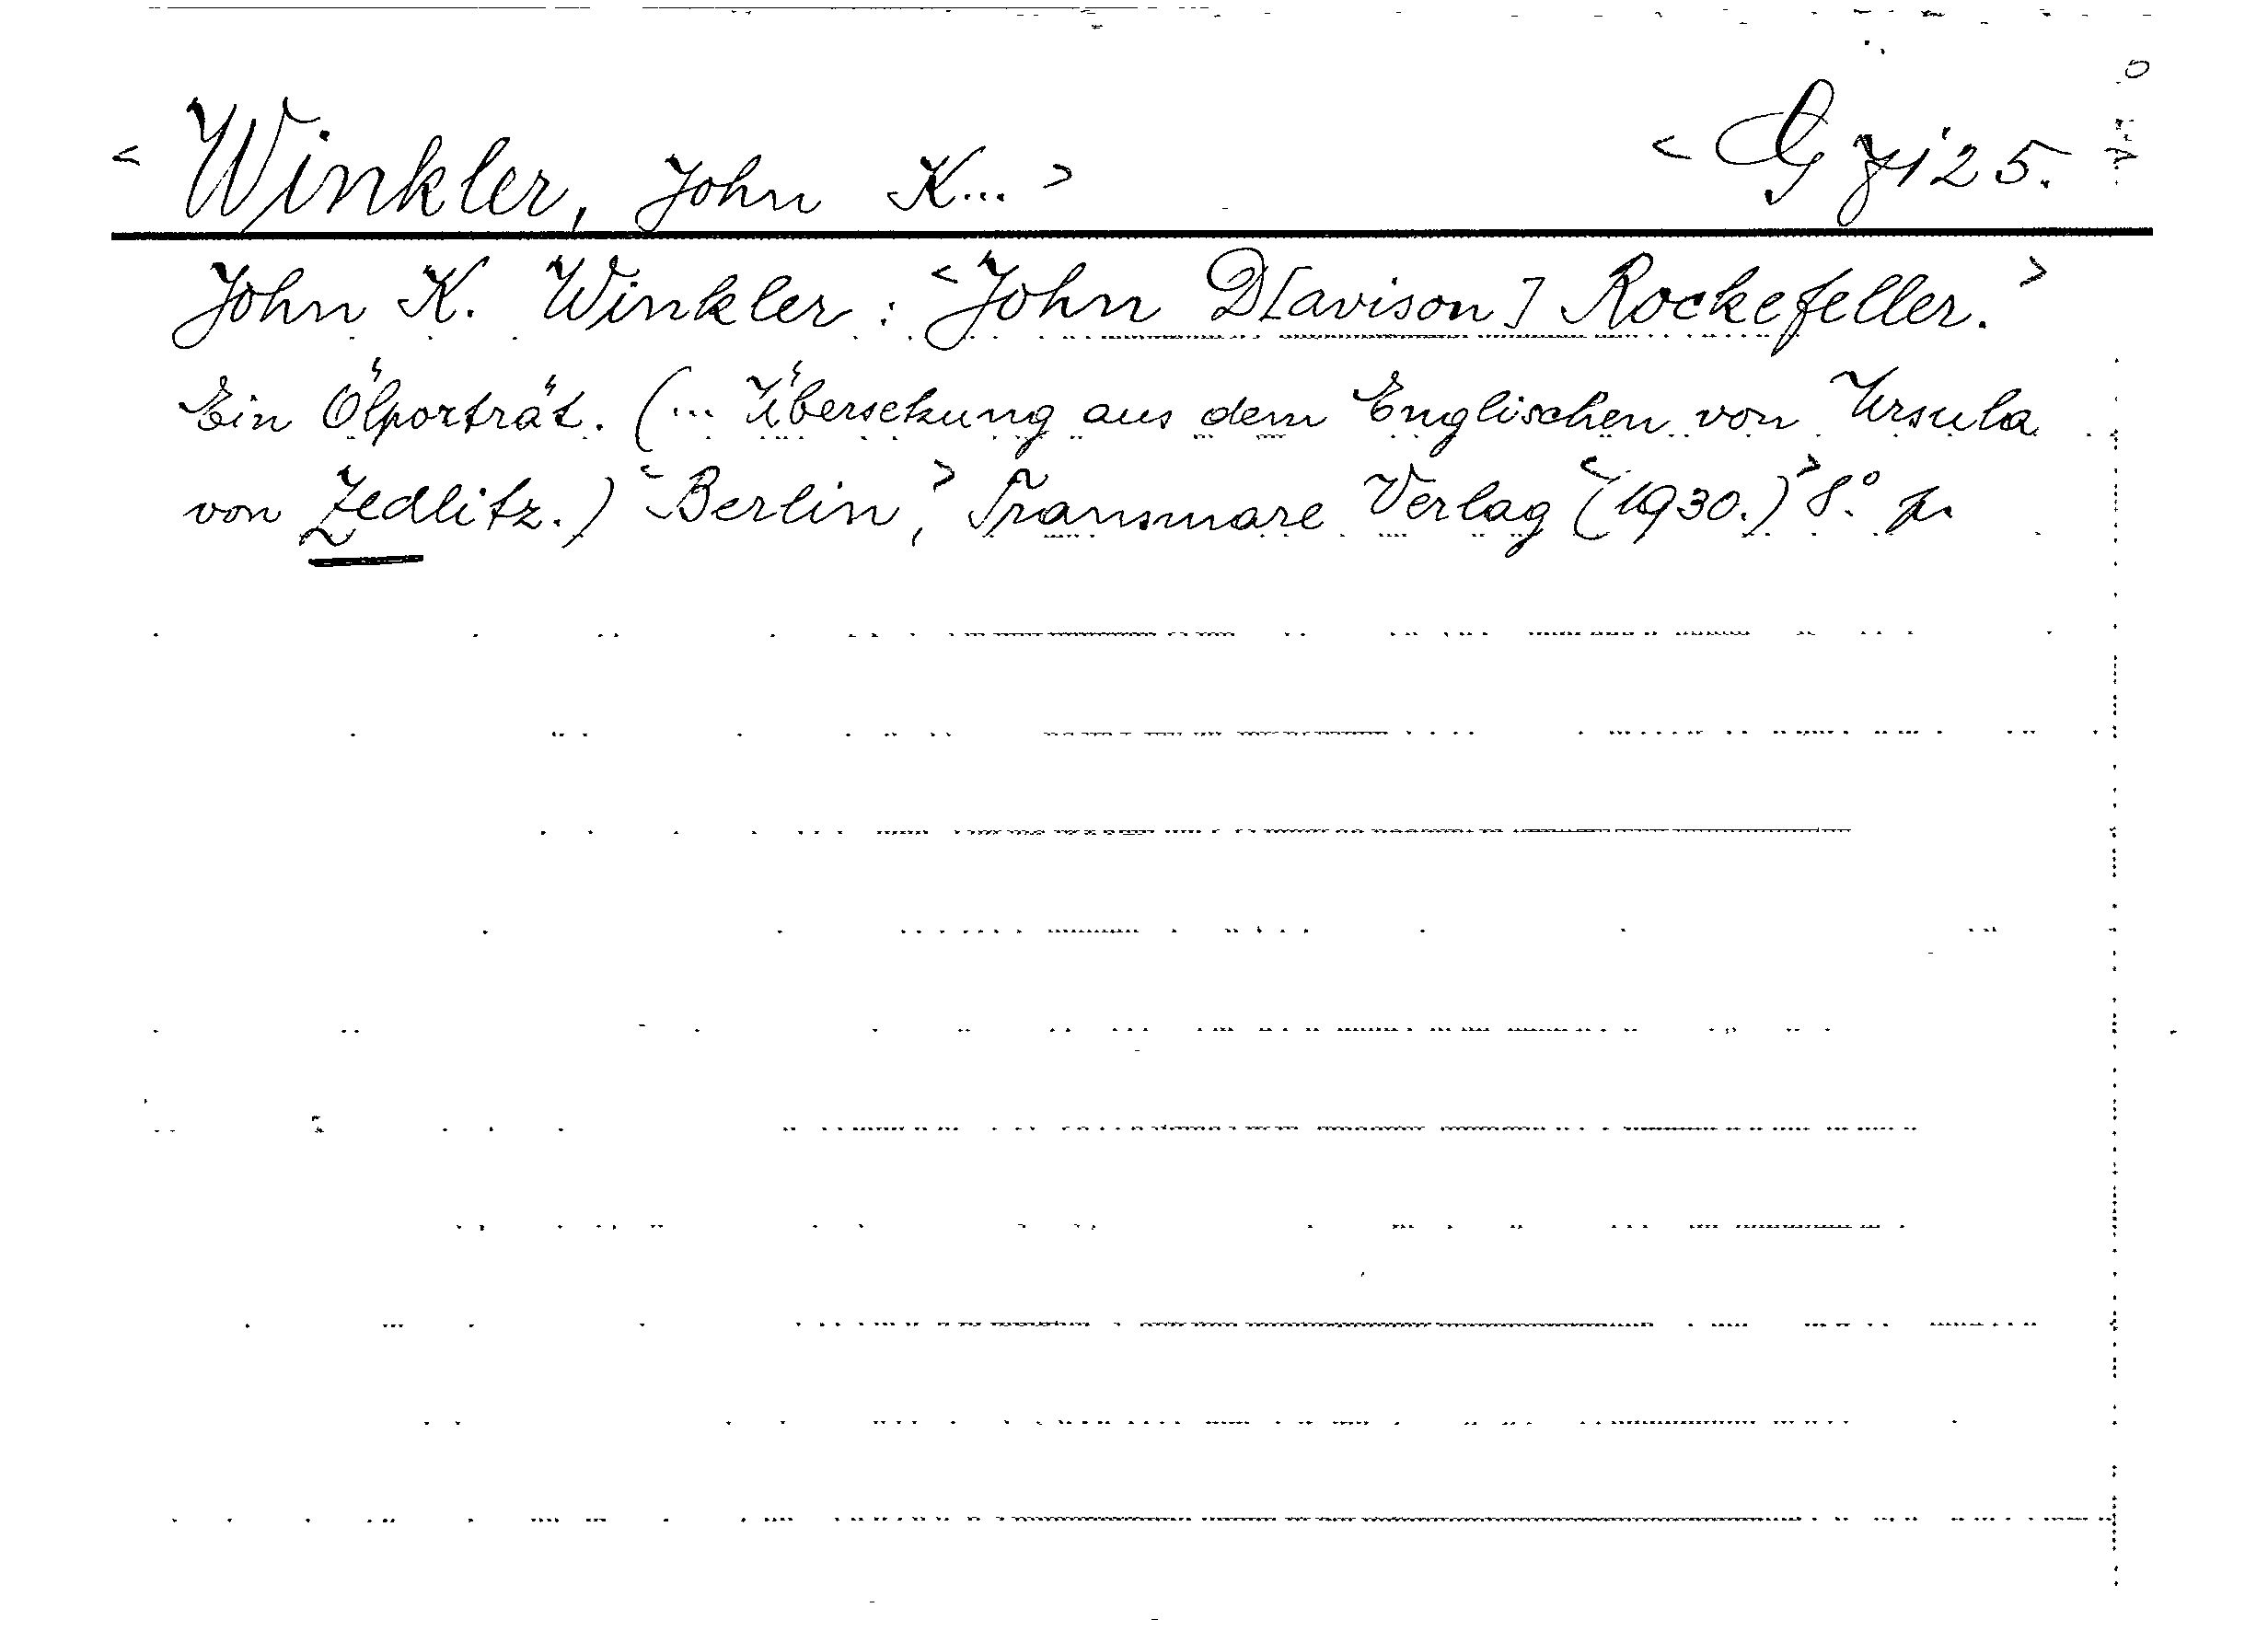 < Winkler, John K... > < G 7125. >
John K. Winkler: <John D[avison] Rockefeller.>
Ein Ölporträt. (... Übersetzung aus dem Englischen von Ursula
von Zedlitz.) <Berlin,> Transmare Verlag <(1930.)> 8.°